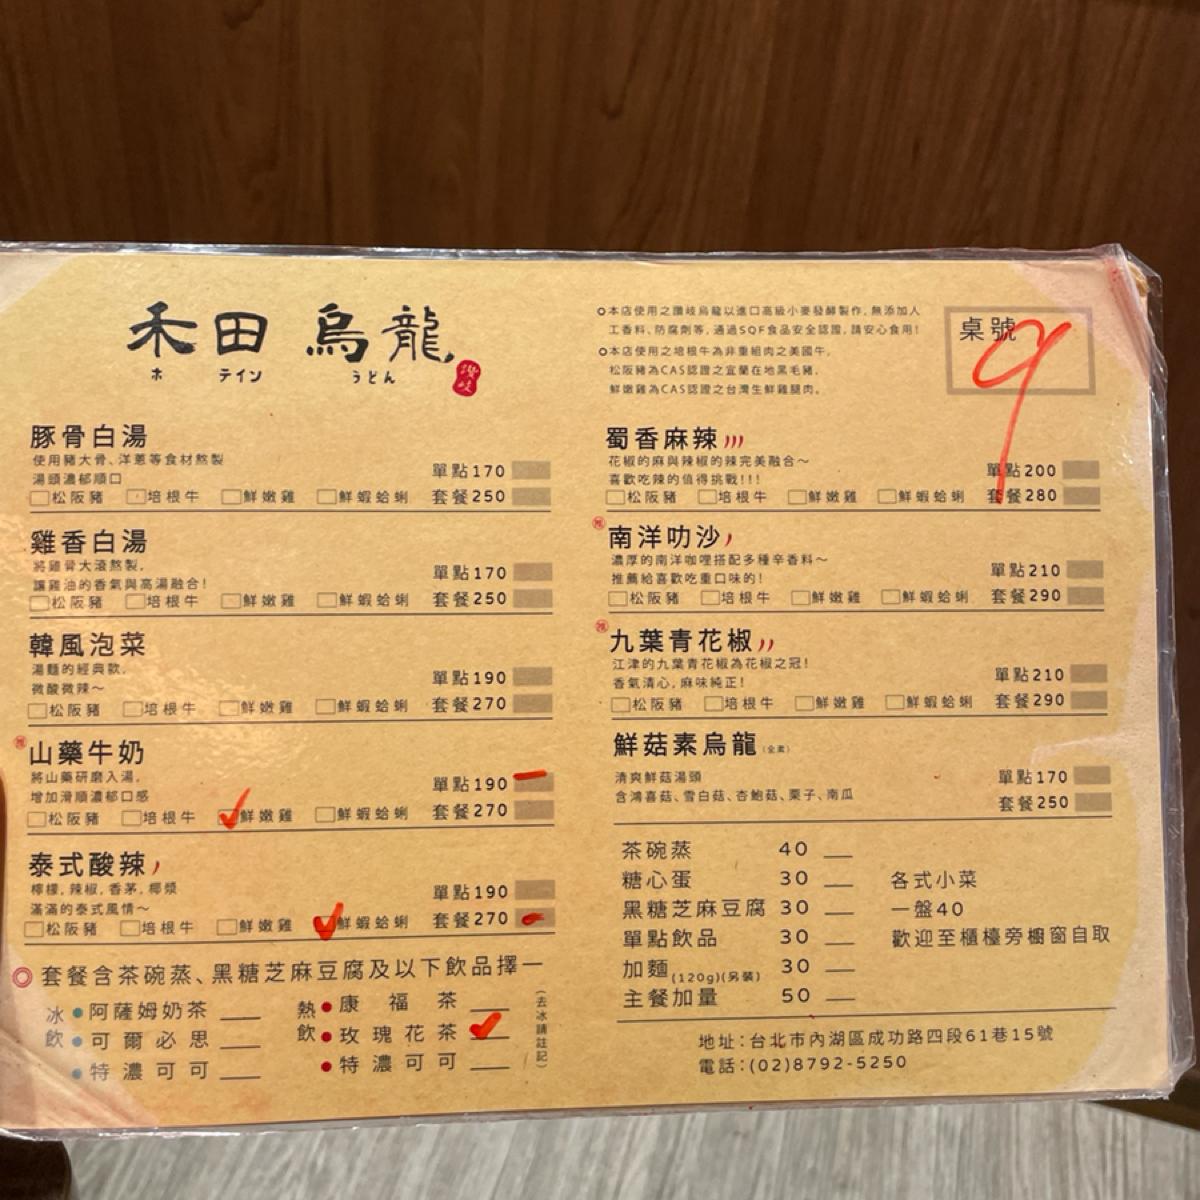 禾田 烏龍
ホ テイン うどん
讚岐
本店使用之讚岐烏龍以進口高級小麥發酵製作,無添加人
工香料、防腐劑等,通過SQF食品安全認證,請安心食用!
本店使用之培根牛為非重組肉之美國牛,
松阪豬為CAS認證之宜蘭在地黑毛豬,
鮮嫩雞為CAS認證之台灣生鮮雞腿肉。
桌號
9
豚骨白湯
使用豬大骨、洋蔥等食材熬製
湯頭濃郁順口
單點170
松阪豬 培根牛 鮮嫩雞 鮮蝦蛤蜊 套餐250
雞香白湯
將雞骨大滾熬製,
讓雞油的香氣與高湯融合!
單點170
松阪豬 培根牛 鮮嫩雞 鮮蝦蛤蜊 套餐250
韓風泡菜
湯麵的經典款,
微酸微辣~
單點190
松阪豬 培根牛 鮮嫩雞 鮮蝦蛤蜊 套餐270
推
山藥牛奶
將山藥研磨入湯,
增加滑順濃郁口感
單點190
松阪豬 培根牛 鮮嫩雞 鮮蝦蛤蜊 套餐270
泰式酸辣
檸檬,辣椒,香茅,椰漿
滿滿的泰式風情~
單點190
松阪豬 培根牛 鮮嫩雞 鮮蝦蛤蜊 套餐270
◎套餐含茶碗蒸、黑糖芝麻豆腐及以下飲品擇一
冰飲
阿薩姆奶茶
可爾必思
特濃可可
熱飲
康福茶
玫瑰花茶
特濃可可
(去冰請註記)
蜀香麻辣
花椒的麻與辣椒的辣完美融合~
喜歡吃辣的值得挑戰!!!
單點200
松阪豬 培根牛 鮮嫩雞 鮮蝦蛤蜊 套餐280
推
南洋叻沙
濃厚的南洋咖哩搭配多種辛香料~
推薦給喜歡吃重口味的!
單點210
松阪豬 培根牛 鮮嫩雞 鮮蝦蛤蜊 套餐290
推
九葉青花椒
江津的九葉青花椒為花椒之冠!
香氣清心,麻味純正!
單點210
松阪豬 培根牛 鮮嫩雞 鮮蝦蛤蜊 套餐290
鮮菇素烏龍(全素)
清爽鮮菇湯頭
含鴻喜菇、雪白菇、杏鮑菇、栗子、南瓜
單點170
套餐250
茶碗蒸 40
糖心蛋 30
黑糖芝麻豆腐 30
單點飲品 30
加麵(120g)(另裝) 30
主餐加量 50
各式小菜
一盤40
歡迎至櫃檯旁櫥窗自取
地址:台北市內湖區成功路四段61巷15號
電話:(02)8792-5250